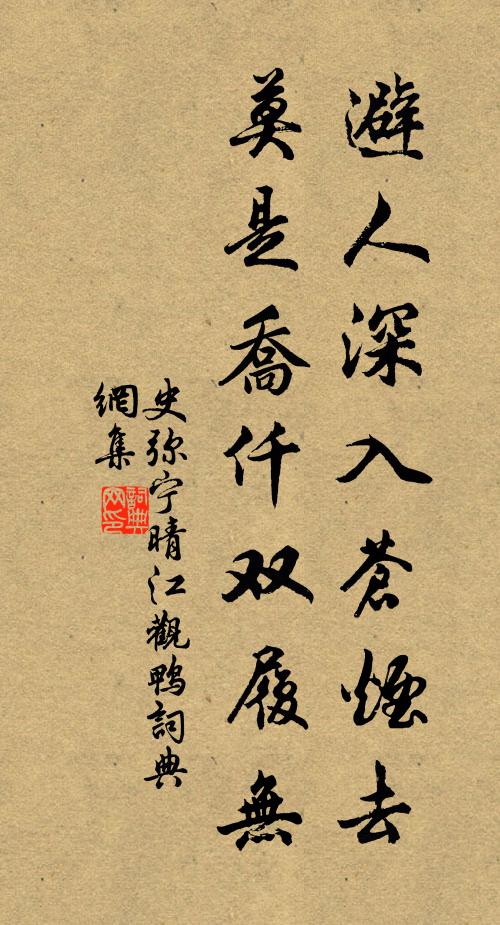 避人深入蒼煙去
莫是喬仟双履無
史弥宁晴江觀鴨詞典
網集
詞典
网印